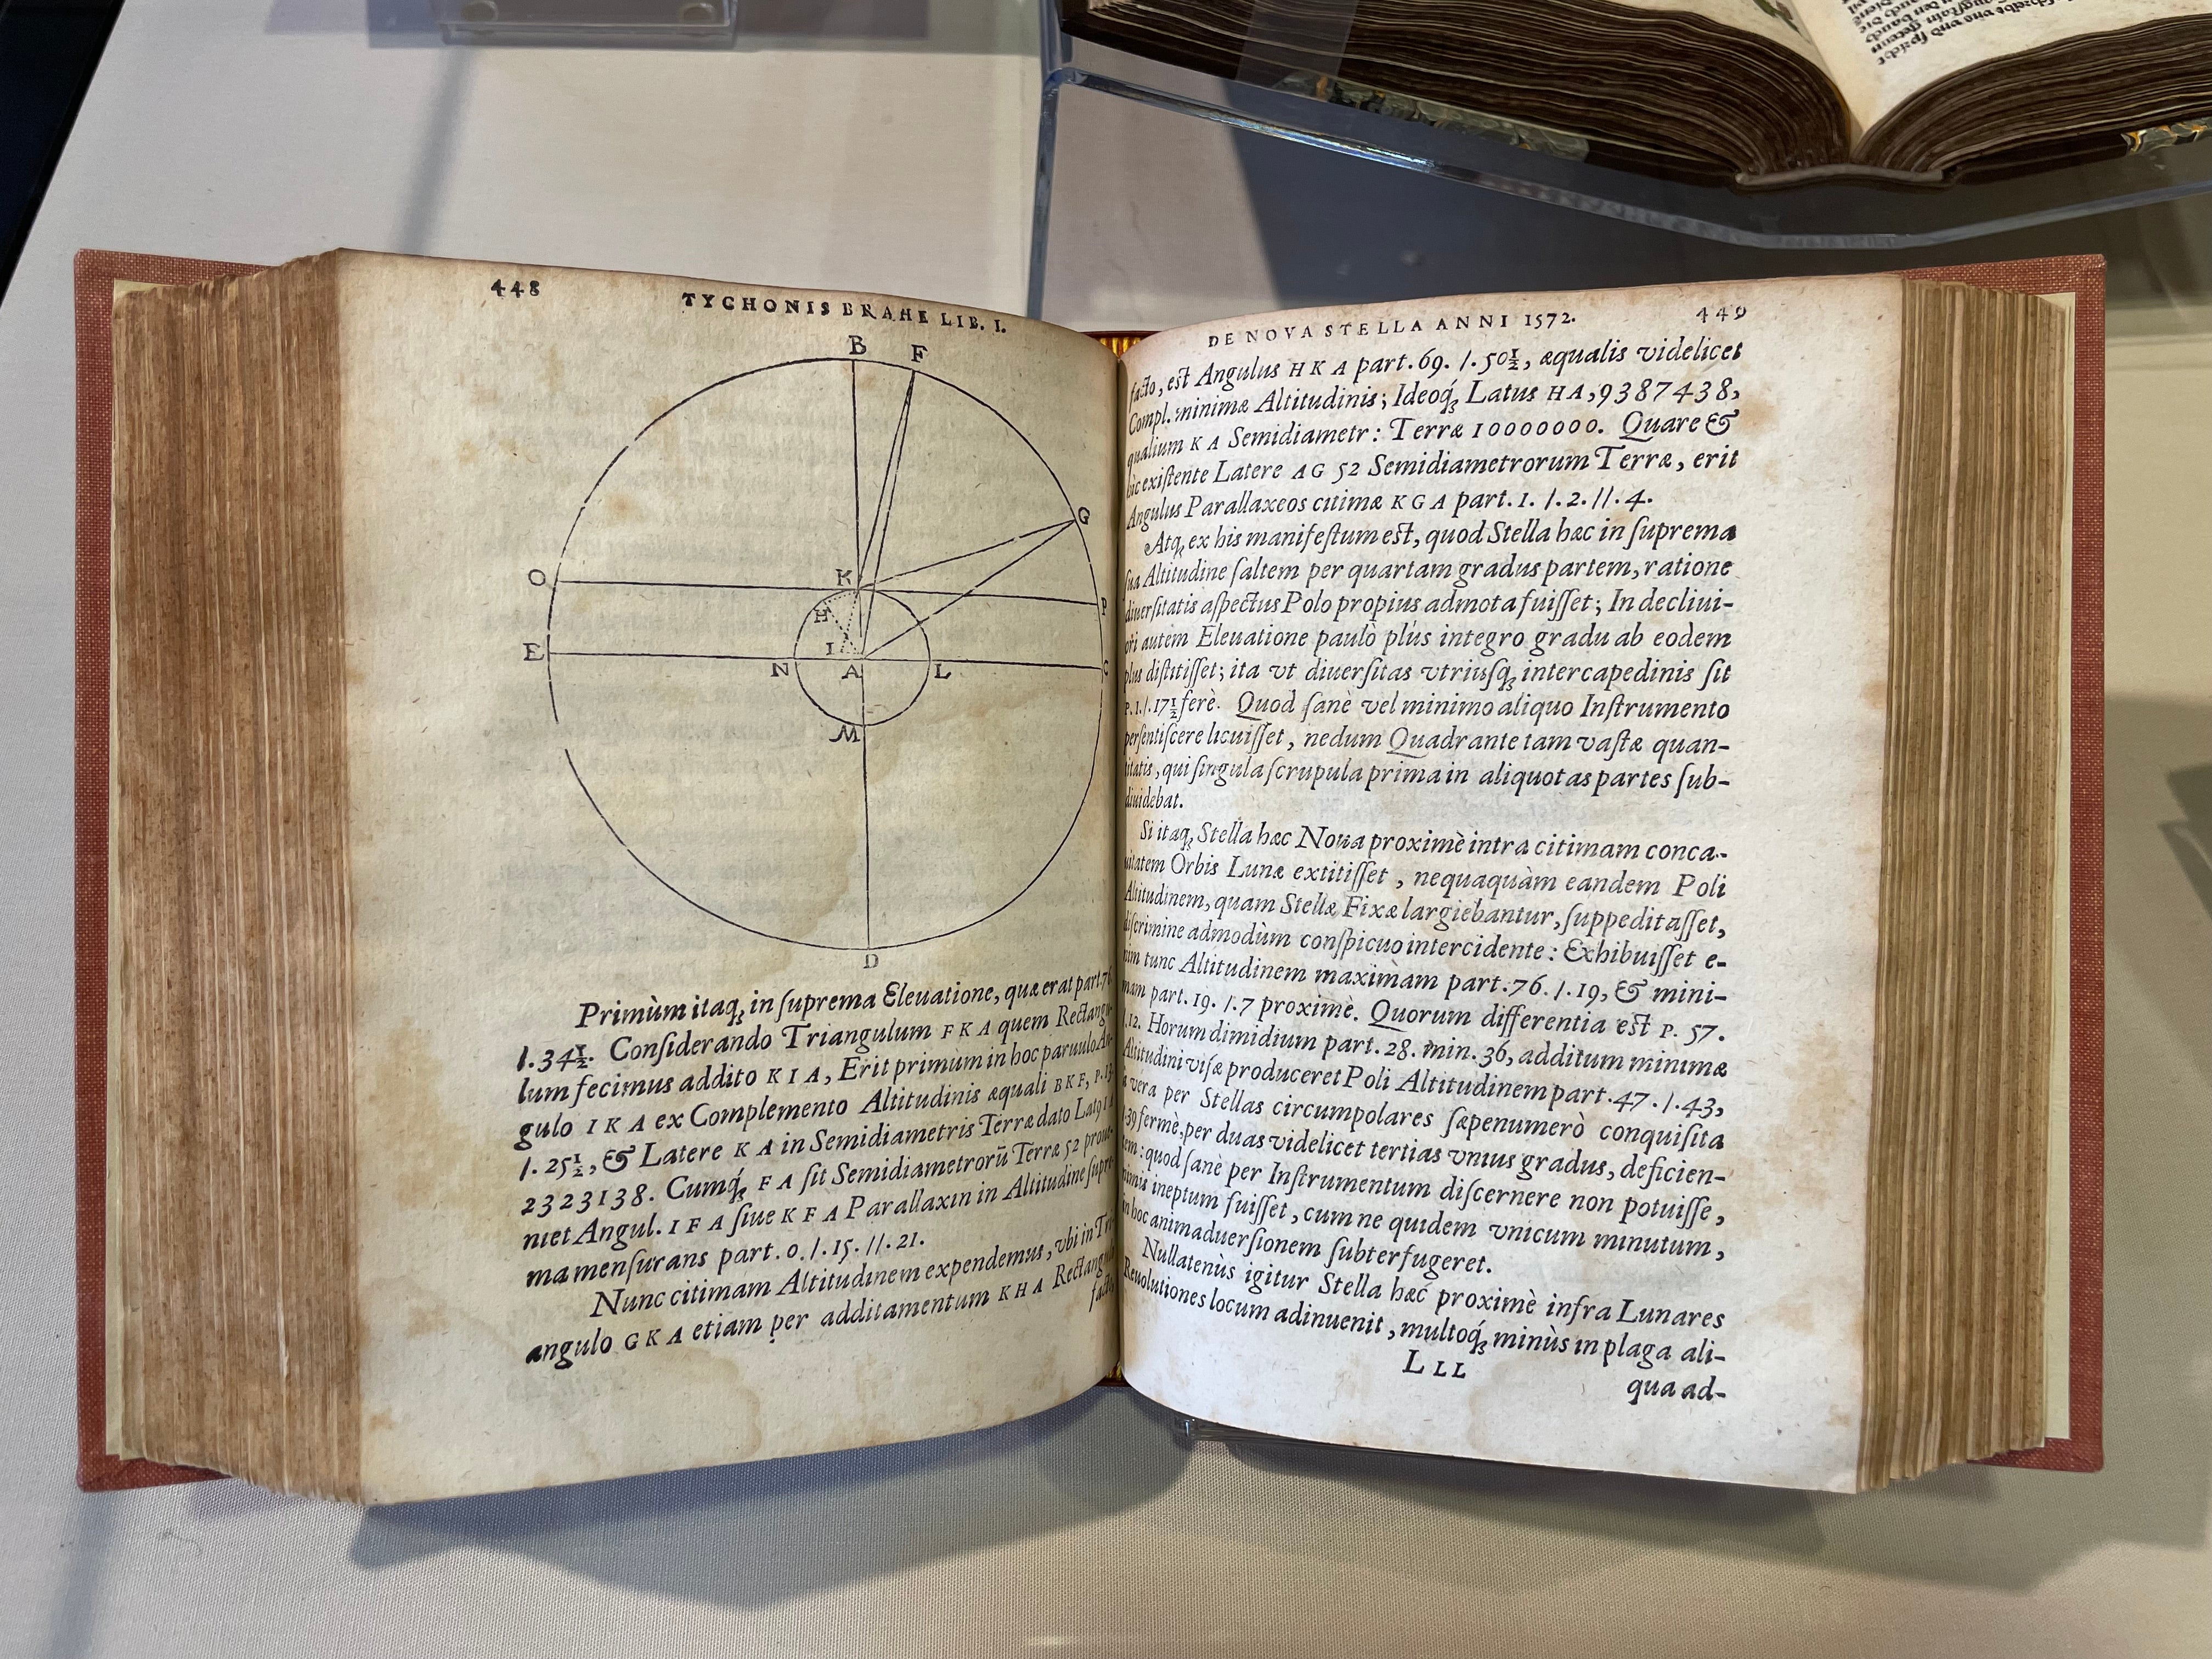 448
TYCHONIS BRAHE LIB. I.
B F
G
O K P
H
E I C
N A L
M
D
Primùm itaq́ꝫ in ſuprema Eleuatione, quæ erat part. 76
/. 34½. Conſiderando Triangulum F K A quem Rectangu-
lum fecimus addito K I A, Erit primum in hoc paruulo An-
gulo I K A ex Complemento Altitudinis æquali B K F, P. 13
/. 25½, & Latere K A in Semidiametris Terræ dato Latꝰ I A
2323138. Cumq́ꝫ F A ſit Semidiametrorū Terræ 52 proue-
niet Angul. I F A ſiue K F A Parallaxin in Altitudine ſupre-
ma menſurans part. 0. /. 15. //. 21.
Nunc citimam Altitudinem expendemus, vbi in Tri-
angulo G K A etiam per additamentum K H A Rectangulo
facto,
DE NOVA STELLA ANNI 1572. 449
facto, eſt Angulus H K A part. 69. /. 50½, æqualis videlicet
Compl. minimæ Altitudinis; Ideoq́ꝫ Latus H A, 9387438,
qualium K A Semidiametr: Terræ 10000000. Quare &
hîc exiſtente Latere A G 52 Semidiametrorum Terræ, erit
Angulus Parallaxeos citimæ K G A part. 1. /. 2. //. 4.
Atqꝫ ex his manifeſtum eſt, quod Stella hæc in ſuprema
ſua Altitudine ſaltem per quartam gradus partem, ratione
diuerſitatis aſpectus Polo propius admota fuiſſet; In decliui-
ori autem Eleuatione paulò plús integro gradu ab eodem
plus diſtitiſſet; ita vt diuerſitas vtriuſqꝫ intercapedinis ſit
P. 1. /. 17½ ferè. Quod ſanè vel minimo aliquo Inſtrumento
perſentiſcere licuiſſet, nedum Quadrante tam vaſtæ quan-
titatis, qui ſingula ſcrupula prima in aliquot as partes ſub-
diuidebat.
Si itaqꝫ Stella hæc Noua proximè intra citimam conca-
uitatem Orbis Lunæ extitiſſet, nequaquàm eandem Poli
Altitudinem, quam Stellæ Fixæ largiebantur, ſuppeditaſſet,
diſcrimine admodùm conſpicuo intercidente: Exhibuiſſet e-
nim tunc Altitudinem maximam part. 76. /. 19, & mini-
mam part. 19. /. 7 proximè. Quorum differentia eſt P. 57.
/. 12. Horum dimidium part. 28. min. 36, additum minimæ
Altitudini viſæ produceret Poli Altitudinem part. 47. /. 43,
a vera per Stellas circumpolares ſæpenumerò conquiſita
/. 39 fermè, per duas videlicet tertias vnius gradus, deficien-
tem: quod ſanè per Inſtrumentum diſcernere non potuiſſe,
nimis ineptum fuiſſet, cum ne quidem vnicum minutum,
in hoc animaduerſionem ſubterfugeret.
Nullatenùs igitur Stella hæc proximè infra Lunares
Reuolutiones locum adinuenit, multoq́ꝫ minùs in plaga ali-
LLL
qua ad-